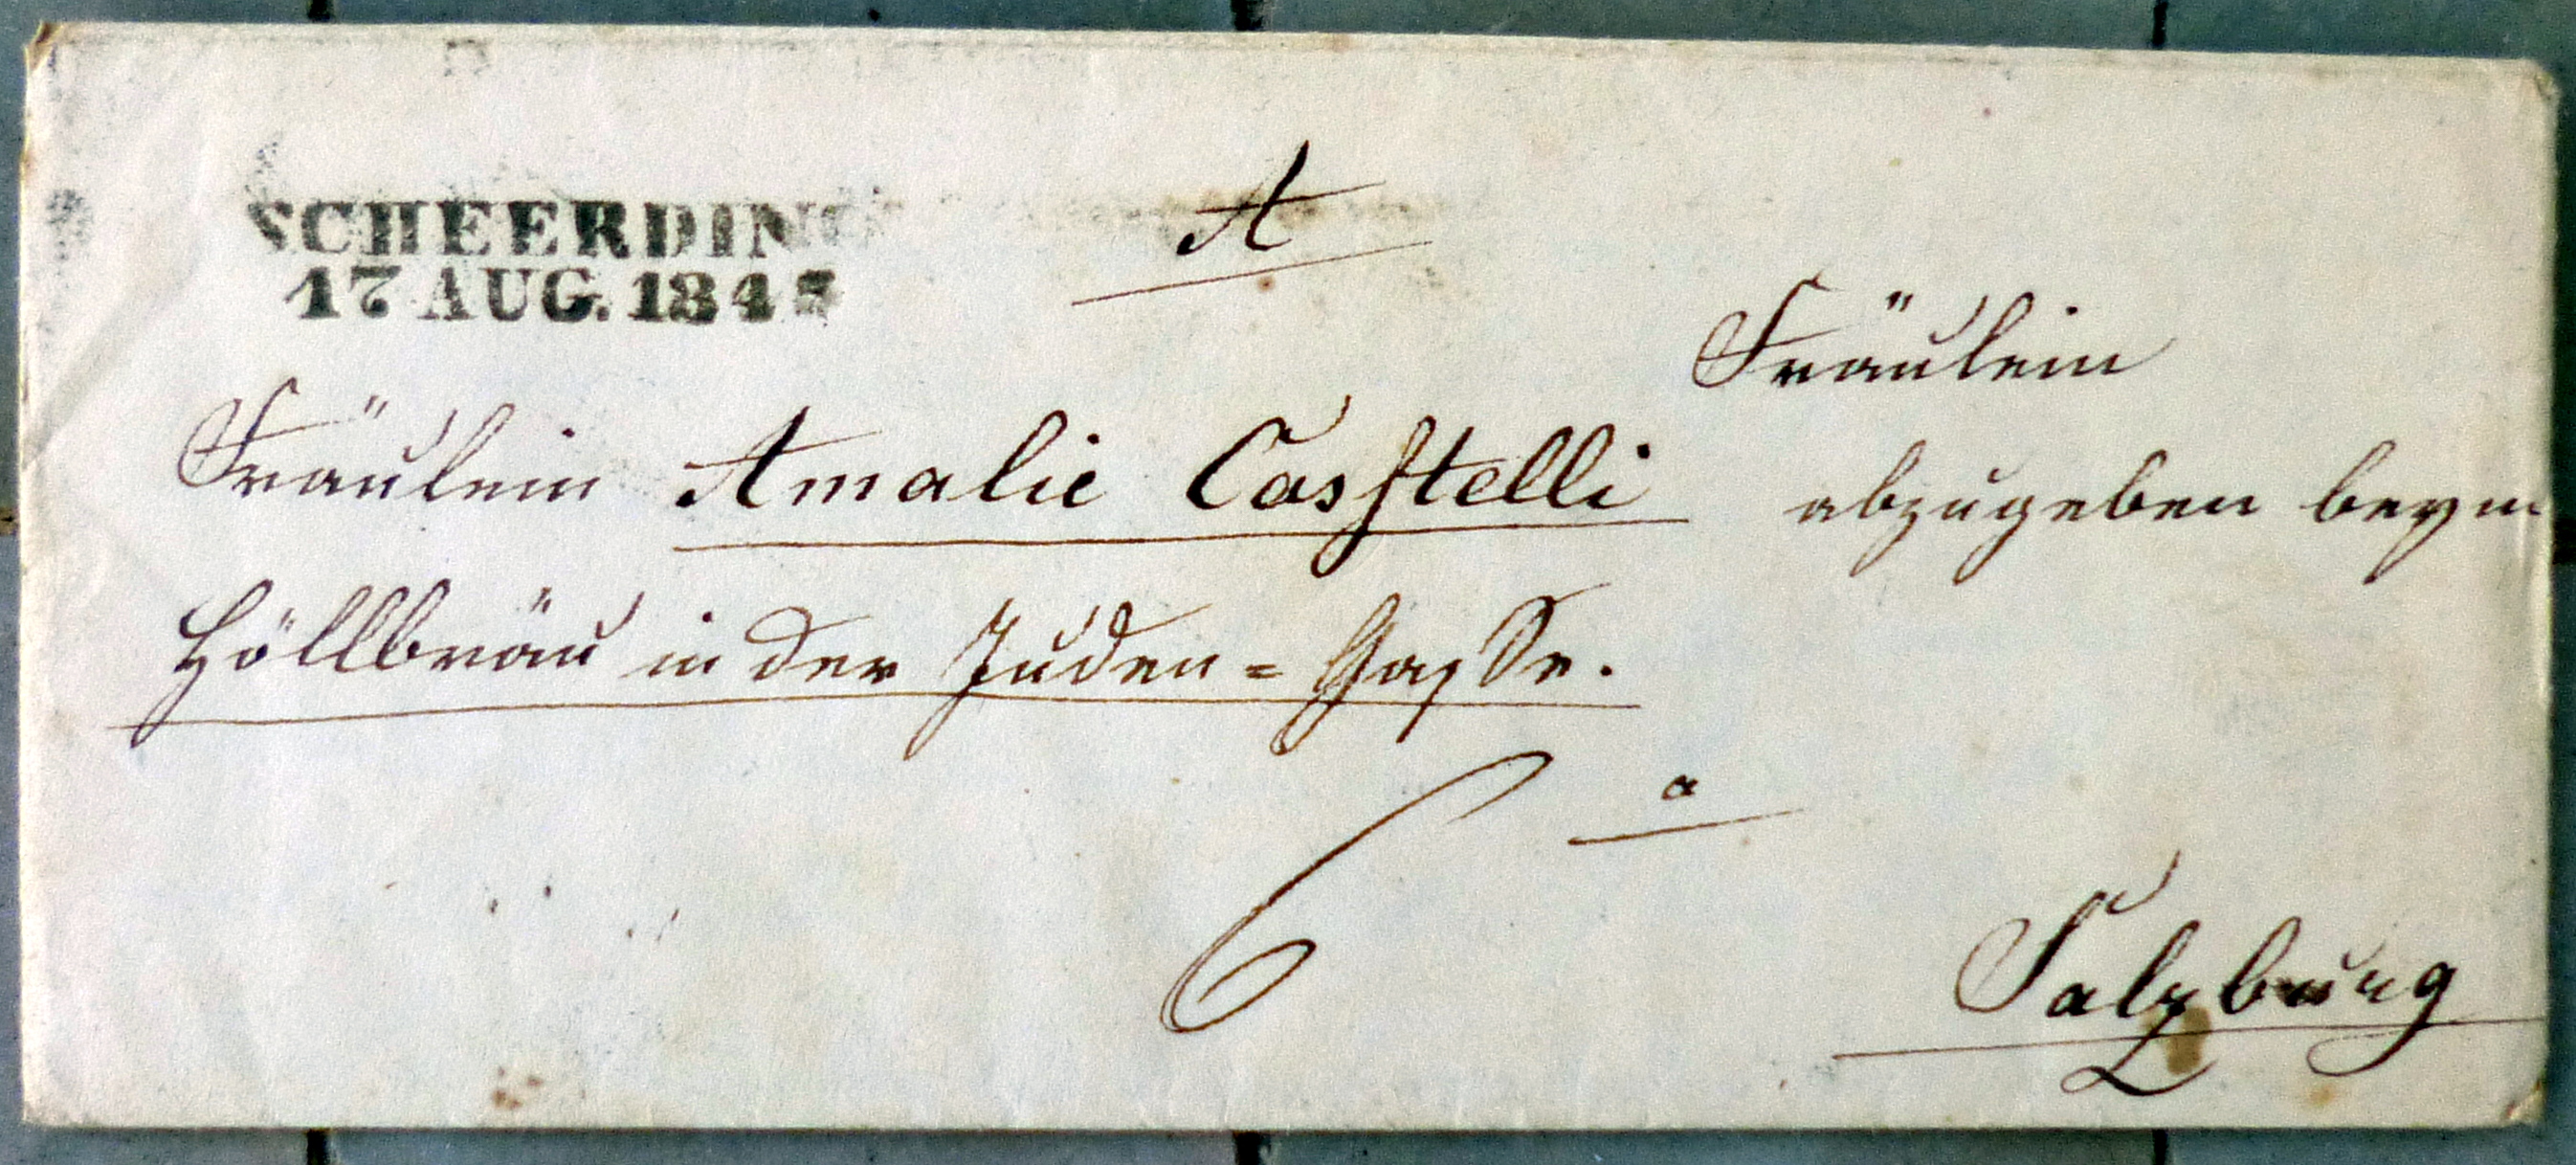 SCHEERDING
17 AUG. 184
A
Fräulein
Fräulein Amalie Casstelli abzugeben beym
Höllbräu in der Juden=Gasse.
a
6
Salzburg